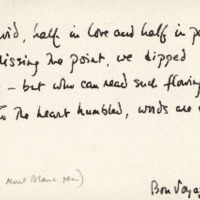 id, half in love and half in p
issing the point, we dipped
- but who can read such flowing
to the heart humbled, words are
(Mont Blanc pen)
Bon Voya